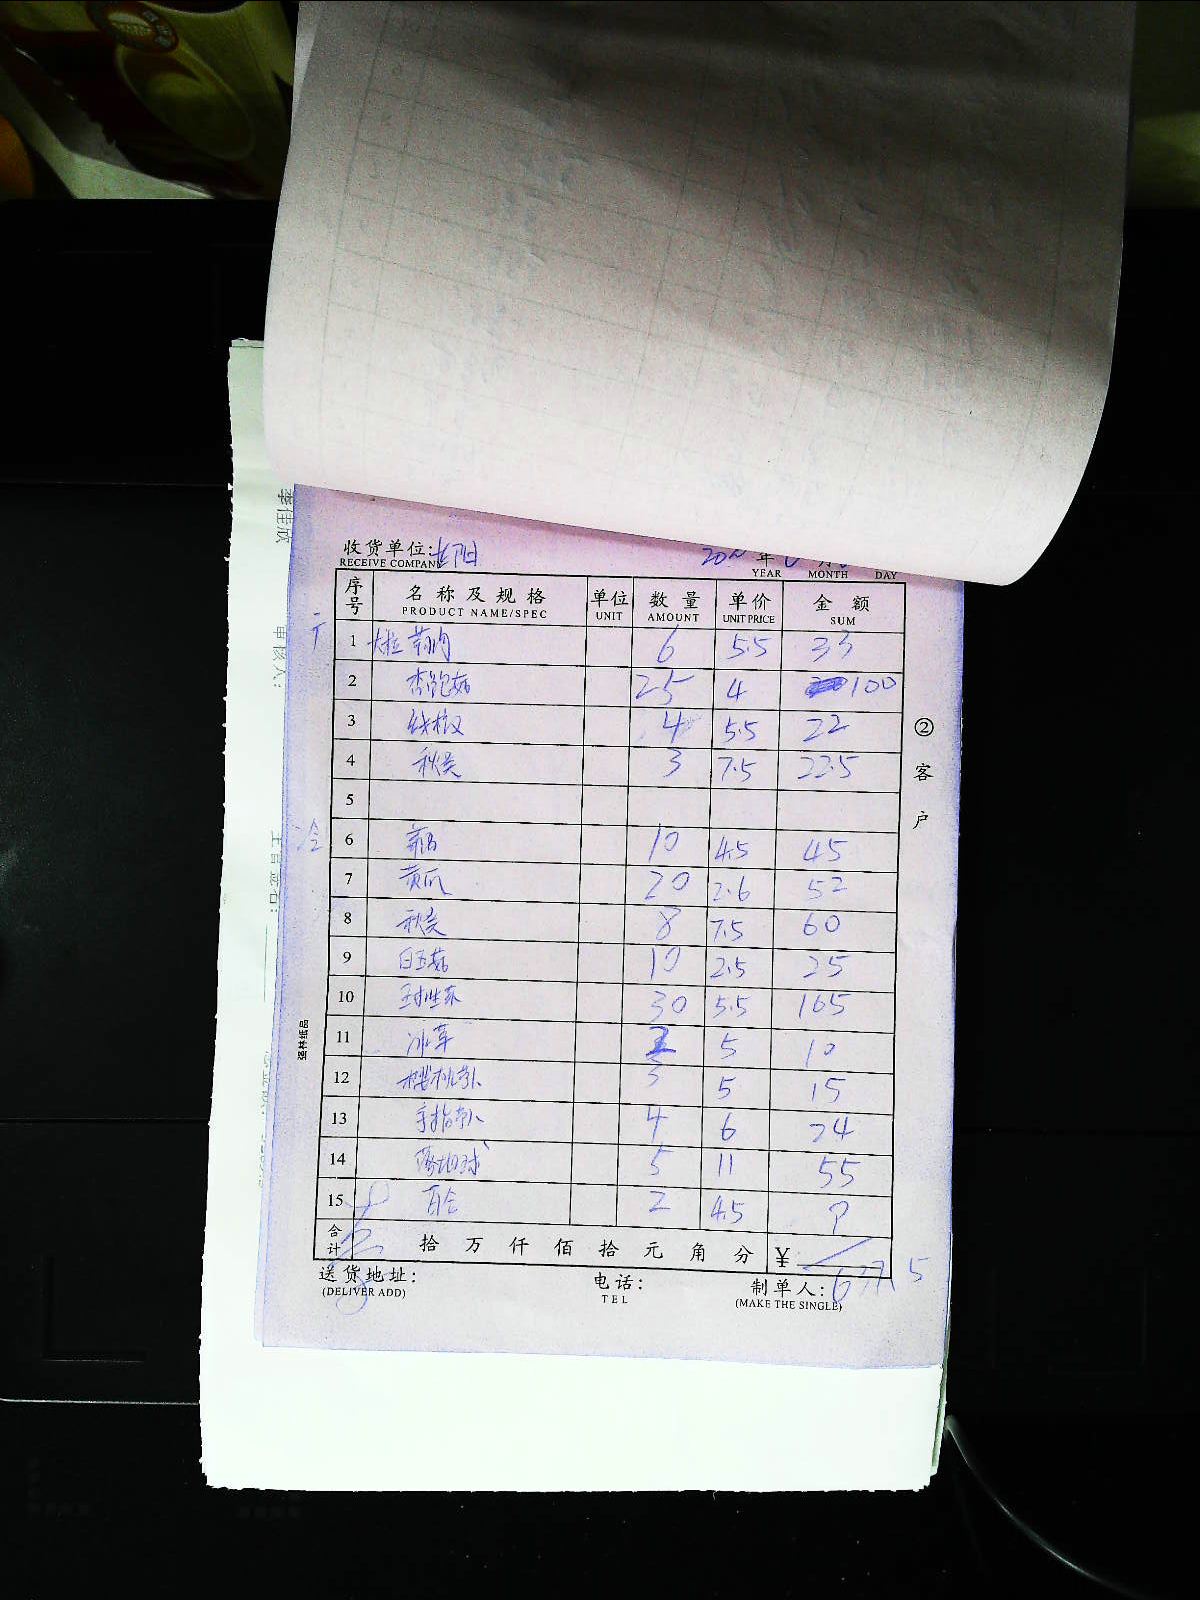 收货单位:
RECEIVE COMPAN 年 月
YEAR MONTH DAY
序号 名称及规格 单位 数量 单价 金额
PRODUCT NAME/SPEC UNIT AMOUNT UNIT PRICE SUM
1 6 5.5 33
2 杏鲍菇 25 4 100
3 线椒 4 5.5 22
4 秋葵 3 7.5 22.5
5
冷
6 10 4.5 45
7 黄瓜 20 2.6 52
8 秋葵 8 7.5 60
9 白玉菇 10 2.5 25
10 30 5.5 165
11 冰草 2 5 10
12 樱桃萝卜 3 5 15
13 手指萝卜 4 6 24
14 5 11 55
15 百合 2 4.5 9
合计 拾 万 仟 佰 拾 元 角 分 ¥
637.5
送货地址: 电话: 制单人:
(DELIVER ADD) TEL (MAKE THE SINGLE)
② 客户
强林纸品
审核人:
主管签名: